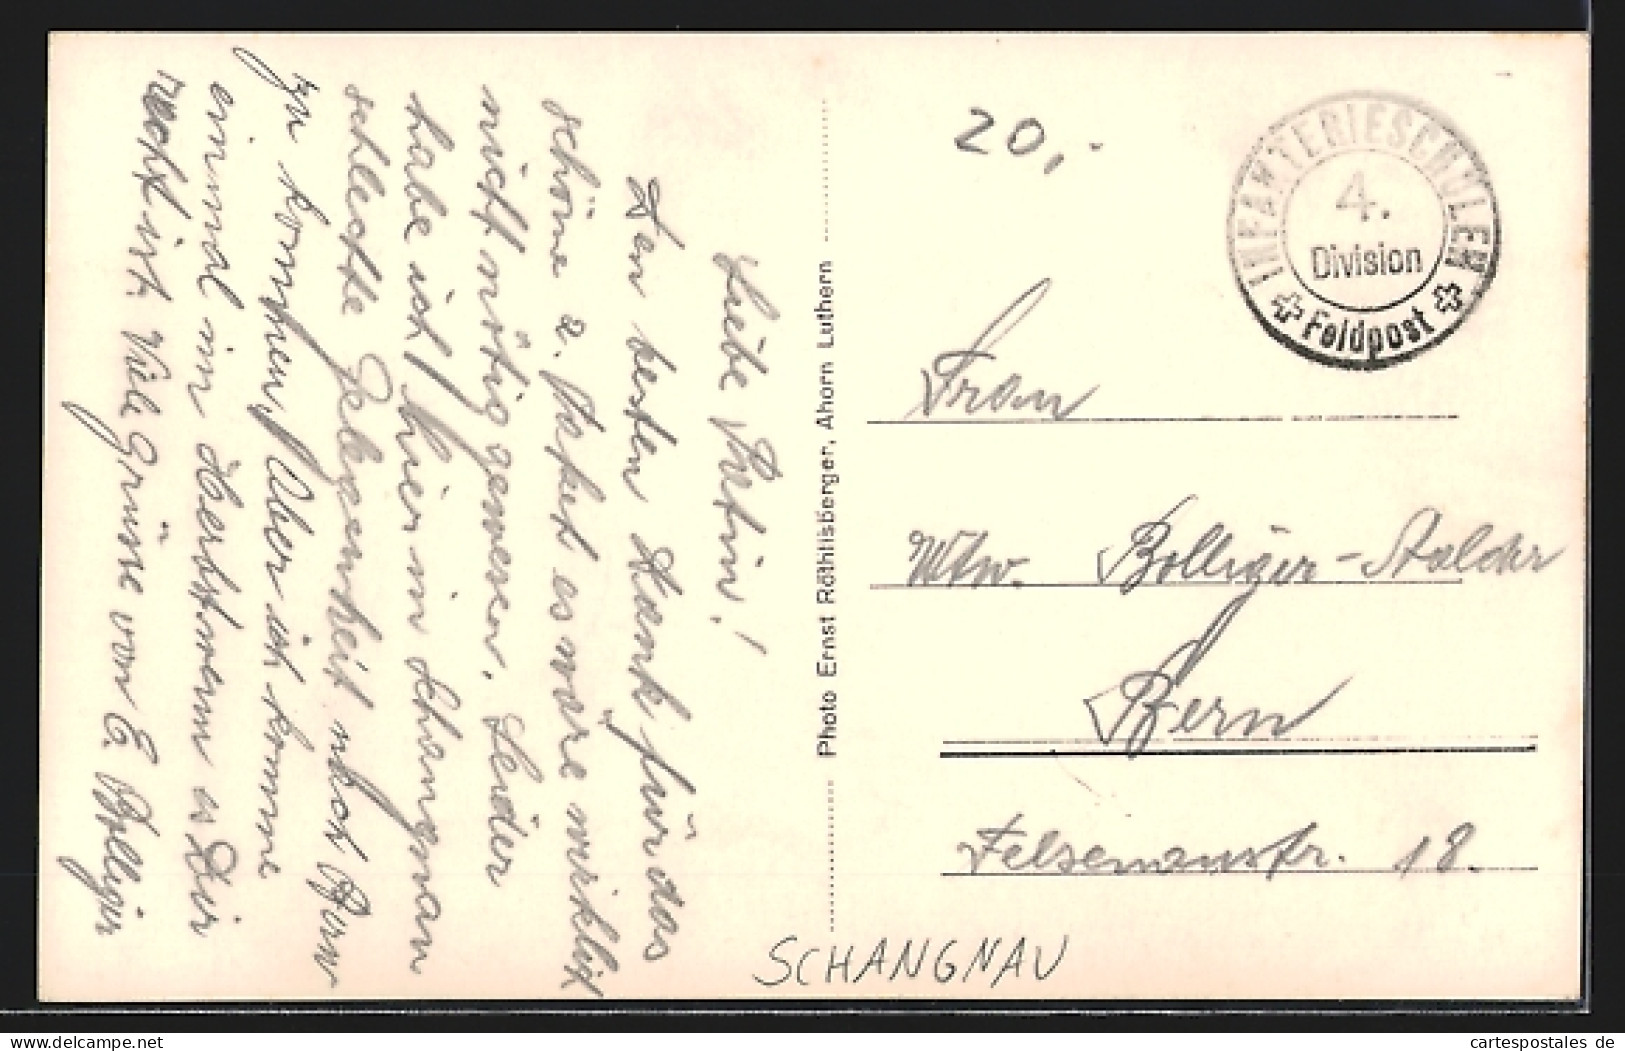 Liebe Gutin!
Den besten Dank für das
schöne 2. Paket es wäre wirklich
nicht nötig gewesen. Leider
habe ich hier in Schangnau
schlechte Gelegenheit nach Bern
zu kommen, Aber ich komme
einmal im Herbst wenn es Dir
recht ist. Viele Grüsse von E. Bolliger
Photo Ernst Röthlisberger, Ahorn Luthern
20.-
INFANTERIESCHULEN
4.
Division
Feldpost
Frau
Wtw. Bolliger-Stalder
Bern
Felsenaustr. 18.
SCHANGNAU
delcampe.net
cartespostales de